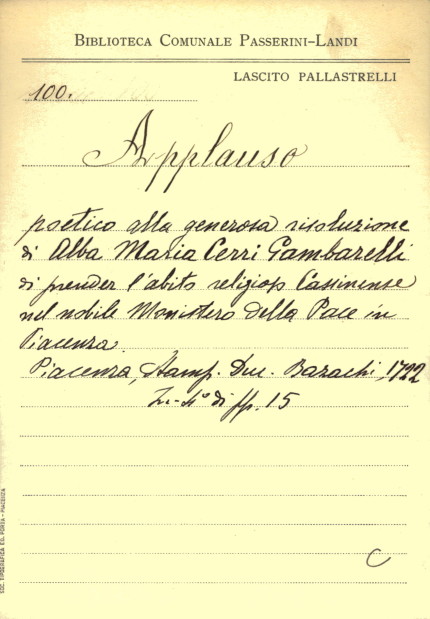 BIBLIOTECA COMUNALE PASSERINI-LANDI
LASCITO PALLASTRELLI
100.
Applauso
poetico alla generosa risoluzione
di Alba Maria Cerri Gambarelli
di prender l'abito religioso Cassinense
nel nobile Monistero della Pace in
Piacenza.
Piacenza, Stamp. Duc. Bazachi, 1722
In-4° di pp. 15
C
SOC. TIPOGRAFICA ED. PORTA - PIACENZA